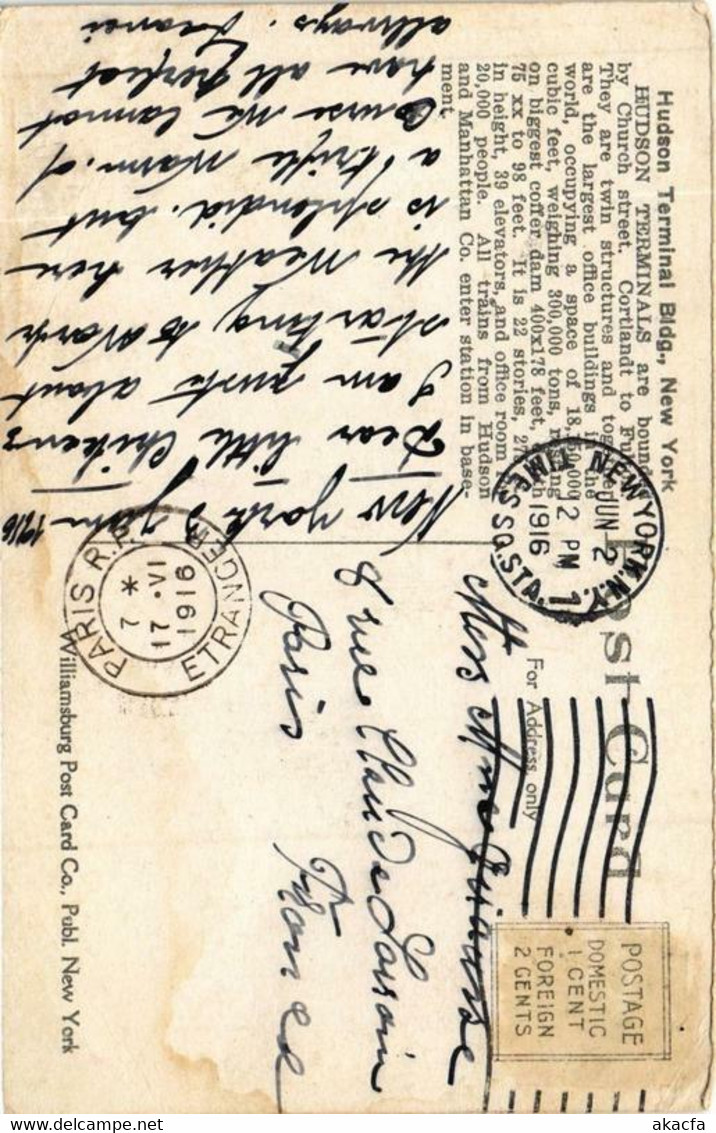 Hudson Terminal Bldg., New York
HUDSON TERMINALS are bound
by Church street. Cortlandt to Fu
They are twin structures and toge
are the largest office buildings i the
world, occupying a space of 18,150,000
cubic feet, weighing 300,000 tons, resting
on biggest coffer dam 400x178 feet,
75 xx to 98 feet. It is 22 stories, 27
in height, 39 elevators, and office room
20,000 people. All trains from Hudson
and Manhattan Co. enter station in base-
ment.
New York 3 1916
Dear little Chikens
I am juste about
starting to work
the weather here
is splendid. but
a trifle warm. of
Course we cannot
have all perfect
allways.
Post Card
For Address only
NEW YORK, N.Y.
TIMES SQ. STA.
JUN 2
2 PM
1916
1
POSTAGE
DOMESTIC
1 CENT
FOREIGN
2 CENTS
Miss
8 rue Claude Lorrain
Paris
France
PARIS R.P.
ETRANGER
7 *
17 • VI
1916
Williamsburg Post Card Co., Publ. New York
DELCAMPE.NET
akacfa